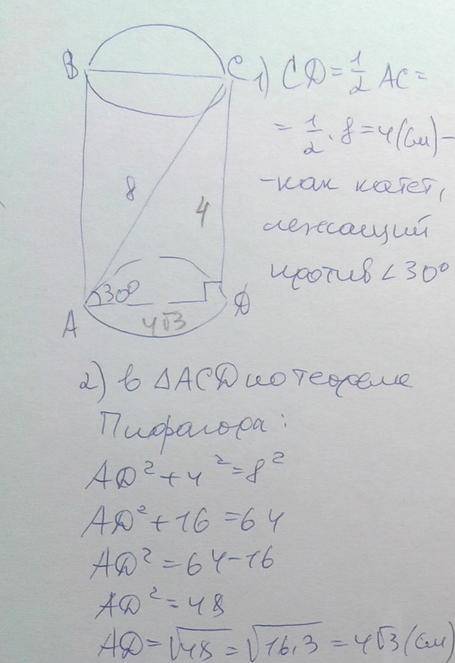 B C
8
4
A 30° D
4√3
1) CD = 1/2 AC =
= 1/2 · 8 = 4 (см) -
- как катет,
лежащий
против ∠30°
2) в ΔACD по теореме
Пифагора:
AD² + 4² = 8²
AD² + 16 = 64
AD² = 64 - 16
AD² = 48
AD = √48 = √16.3 = 4√3 (см)